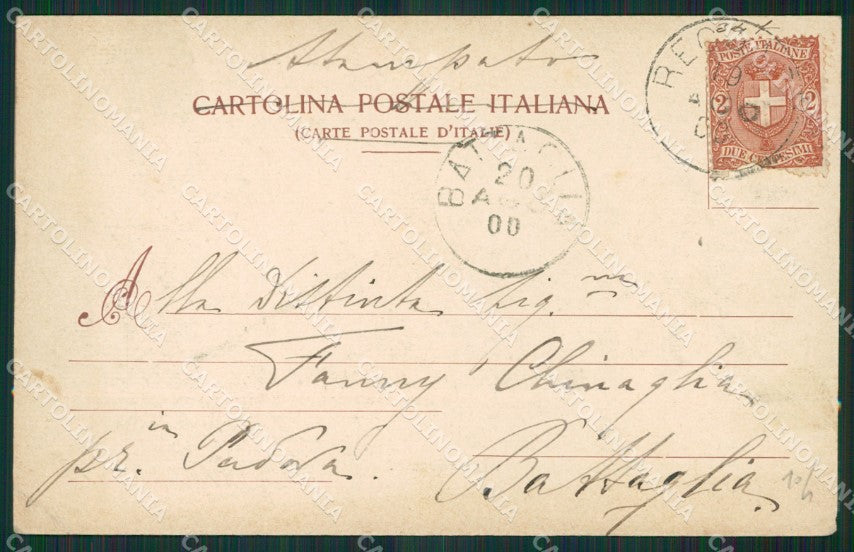 Stampato
CARTOLINA POSTALE ITALIANA
(CARTE POSTALE D'ITALIE)
POSTE ITALIANE
2 2
DUE CENTESIMI
BATTAGLIA
20
00
Alla Distinta Sig.na
Fanny Chinaglia
in Battaglia
pr. Padova.
CARTOLINOMANIA